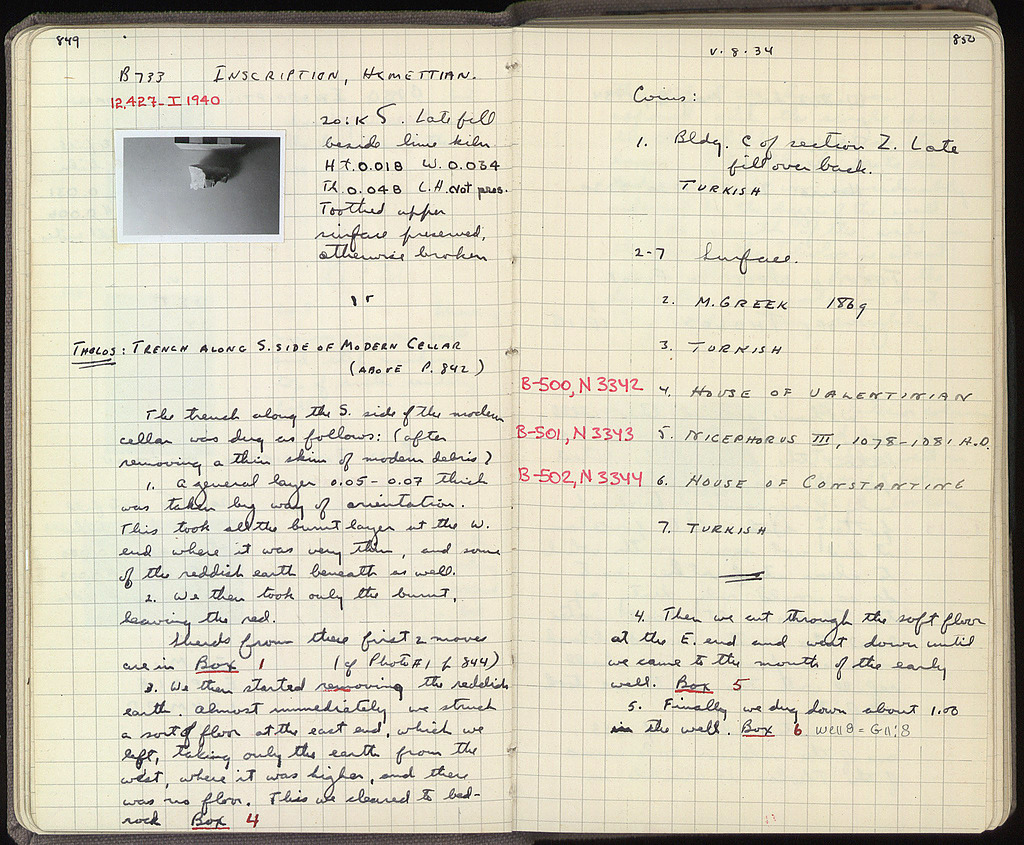 849
B 733 INSCRIPTION, HYMETTIAN.
12,427-I 1940
20:ΙΚ 5. Late fill
beside lime kiln
HT. 0.018 W. 0.034
Th. 0.048 L.H. Not pres.
Toothed upper
surface preserved,
otherwise broken
THOLOS: TRENCH ALONG S. SIDE OF MODERN CELLAR
(ABOVE P. 842)
The trench along the S. side of the modern
cellar was dug as follows: (after
removing a thin skim of modern debris)
1. A general layer 0.05 - 0.07 thick
was taken by way of orientation.
This took all the burnt layer at the W.
end where it was very thin, and some
of the reddish earth beneath as well.
2. We then took only the burnt,
leaving the red.
Sherds from these first 2 moves
are in Box 1 (cf Photo #1 p 844)
3. We then started removing the reddish
earth. Almost immediately we struck
a sort of floor at the east end, which we
left, taking only the earth from the
west, where it was higher, and there
was no floor. This we cleared to bed-
rock Box 4
850
V. 8. 34
Coins:
1. Bldg. C of section Z. Late
fill over back.
TURKISH
2-7 Surface.
2. M. GREEK 1869
3. TURKISH
B-500, N 3342 4. HOUSE OF VALENTINIAN
B-501, N 3343 5. NICEPHORUS III, 1078-1081 A.D.
B-502, N 3344 6. HOUSE OF CONSTANTINE
7. TURKISH
4. Then we cut through the soft floor
at the E. end and went down until
we came to the mouth of the early
well. Box 5
5. Finally we dug down about 1.00
in the well. Box 6 well 9 = G11:8